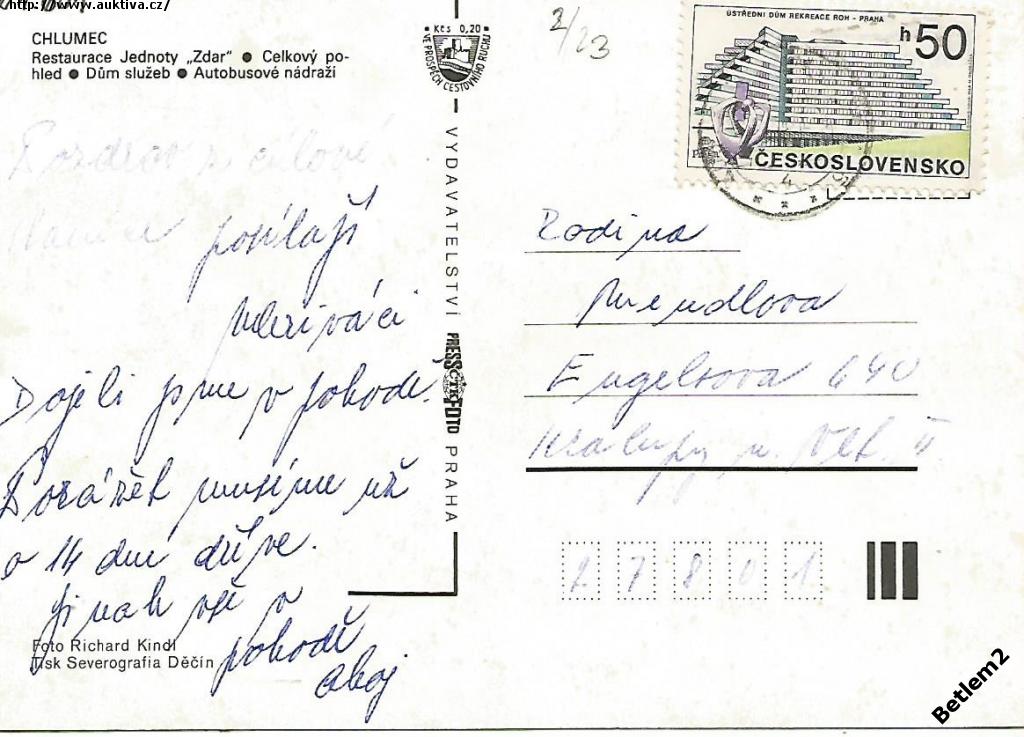 http://www.auktiva.cz/
CHLUMEC
Restaurace Jednoty „Zdar“ ● Celkový po-
hled ● Dům služeb ● Autobusové nádraží
Kčs 0,20
VE PROSPĚCH CESTOVNÍHO RUCHU
2/23
ÚSTŘEDNÍ DŮM REKREACE ROH - PRAHA
h50
ČESKOSLOVENSKO
4
Pozdrav z
posílají
Dojeli jsme v pohodě.
musíme už
o 14 dní dříve.
Jinak vše v
pohodě
ahoj
VYDAVATELSTVÍ PRESSFOTO PRAHA
ČTK
Rodina
Engelsova 640
Kralupy n. Vlt. II
27801
Foto Richard Kindl
Tisk Severografia Děčín
Betlem2